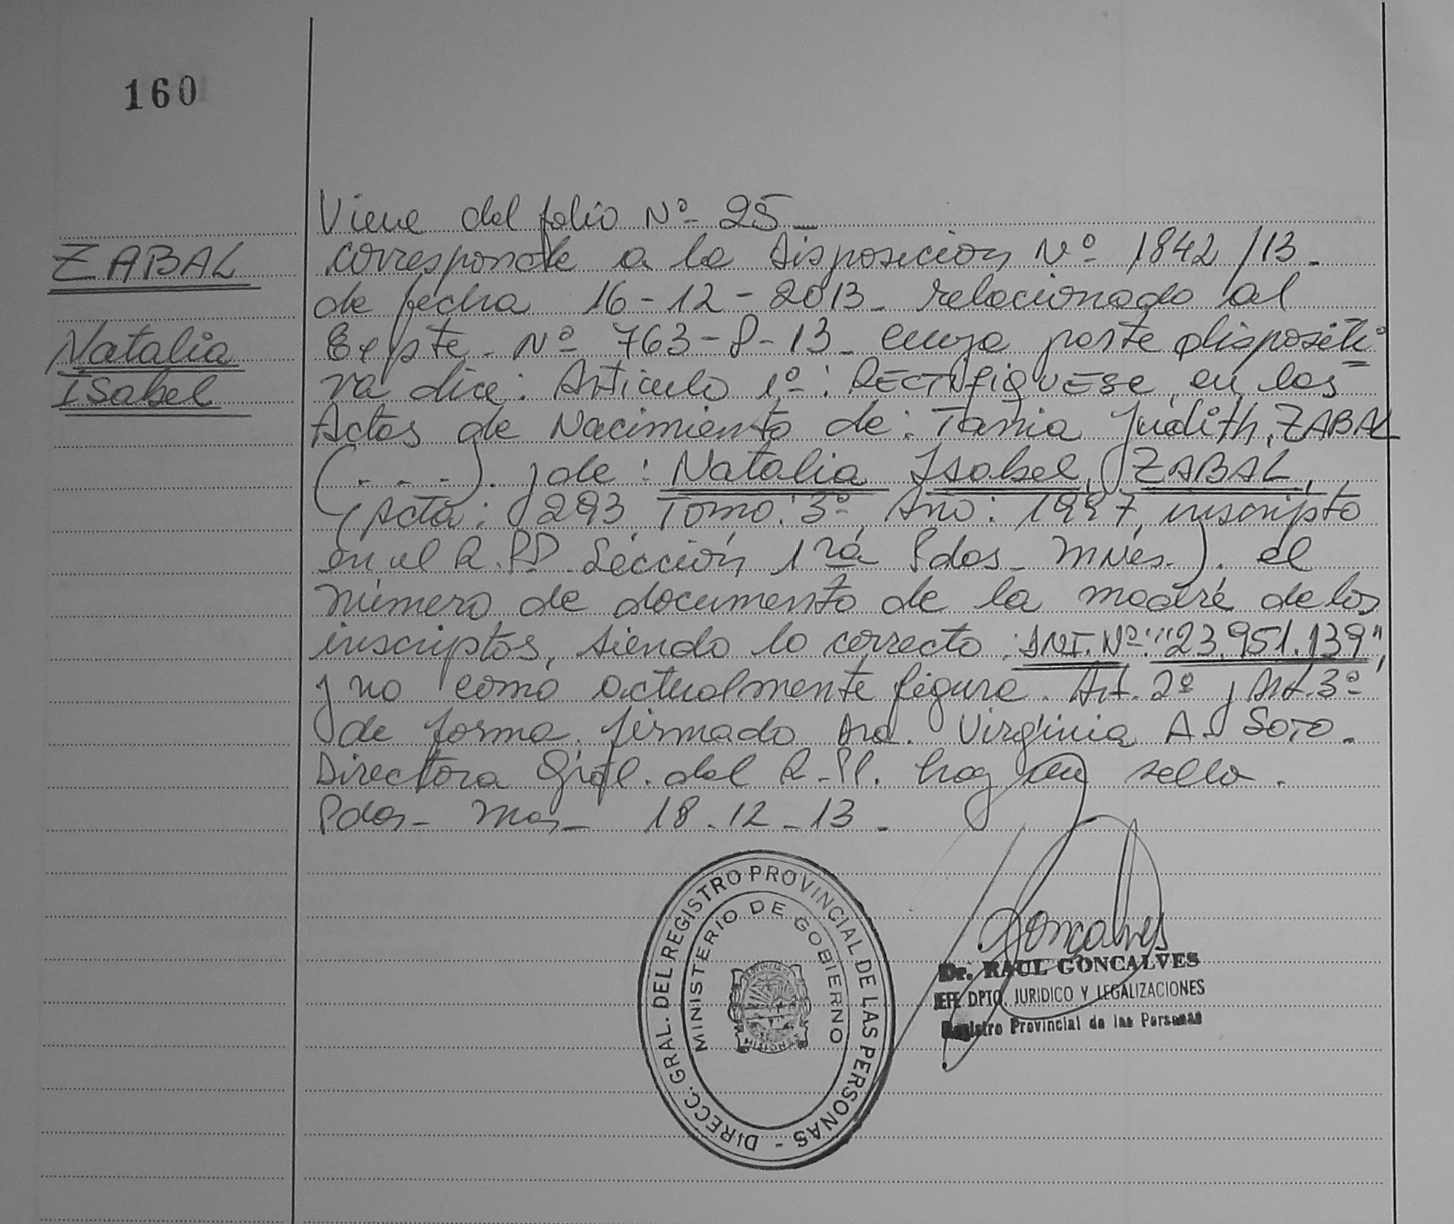 160
ZABAL
Natalia
Isabel
Viene del folio Nº 25_
corresponde a la Disposicion Nº 1842/13_
de fecha 16-12-2013_ relacionado al
Expte. Nº 763-P-13_ cuya parte dispositi=
va dice: Articulo 1º: RECTIFIQUESE, en las
Actas de Nacimiento de: Tania Judith, ZABAL
(. - . - .). y de: Natalia Isabel, ZABAL,
(Acta: 293 Tomo: 3º, Año: 1997, inscripto
en el R.PP. Sección 1ra Pdas_ Mnes.). el
número de documento de la madre de los
inscriptos, siendo lo correcto: DNI. Nº "23.951.139",
y no como actualmente figura. Art. 2º y Art. 3º
de forma. firmado Dra. Virginia A. Soto.
Directora Gral. del R.PP. hay un sello.
Pdas_ Mns_ 18-12-13.
DIRECC. GRAL. DEL REGISTRO PROVINCIAL DE LAS PERSONAS -
MINISTERIO DE GOBIERNO
MISIONES
Goncalves
Dr. RAUL GONCALVES
JEFE DPTO. JURIDICO Y LEGALIZACIONES
Registro Provincial de las Personas